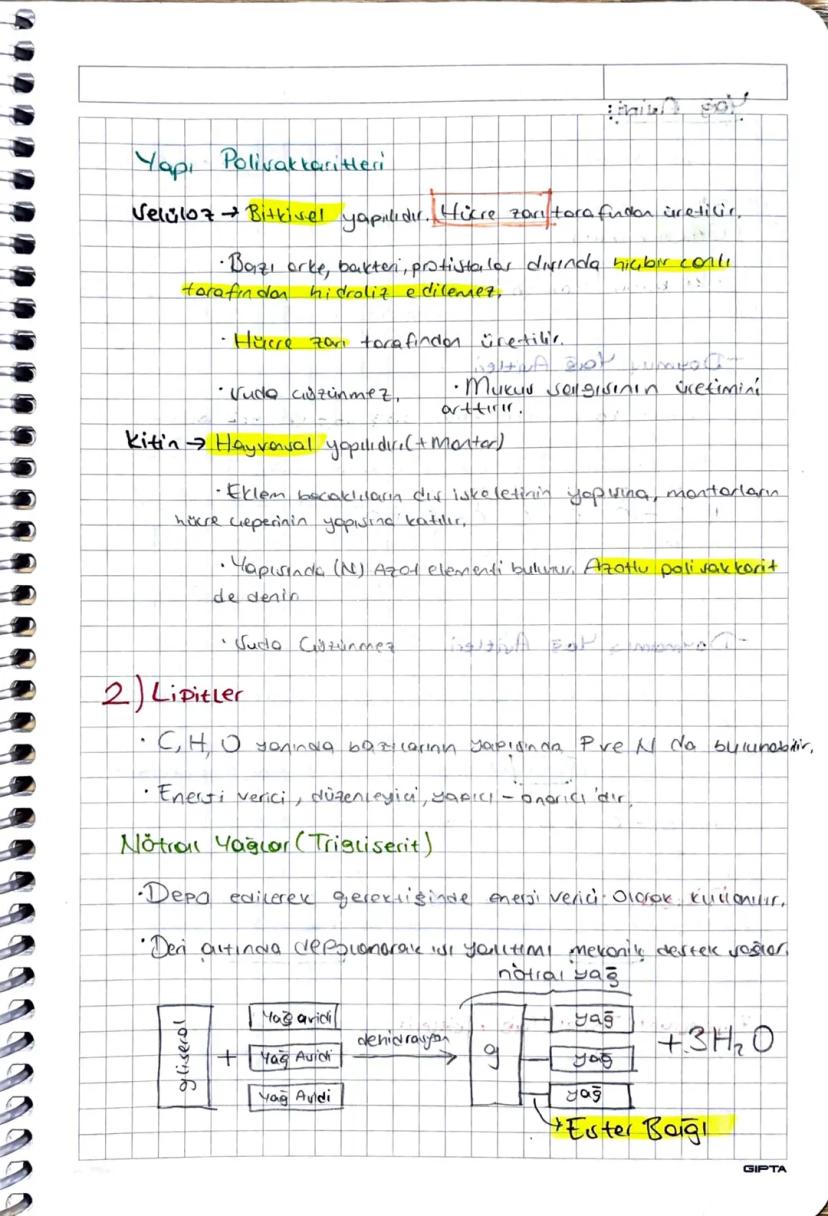 Yapı Polisakkaritleri
Selüloz → Bitkisel yapılıdır. Hücre zarı tarafından üretilir.
· Bazı arke, bakteri, protistalar dışında hiçbir canlı
tarafından hidroliz edilemez.
· Hücre zarı tarafından üretilir.
· Suda çözünmez. · Mukus salgısının üretimini
arttırır.
Kitin → Hayvansal yapılıdır. (+Mantar)
· Eklem bacaklıların dış iskeletinin yapısına, mantarların
hücre çeperinin yapısına katılır.
· Yapısında (N) Azot elementi bulunur. Azotlu polisakkarit
de denir.
· Suda Çözünmez
2) Lipitler
· C, H, O yanında bazılarının yapısında P ve N da bulunabilir.
· Enerji verici, düzenleyici, yapıcı - onarıcı'dır.
Nötral Yağlar (Trigliserit)
· Depo edilerek gerektiğinde enerji verici olarak kullanılır.
· Deri altında depolanarak ısı yalıtımı mekanik destek sağlar.
nötral yağ
gliserol + Yağ asidi Yağ Asidi Yağ Asidi dehidrasyon g yağ yağ yağ +3H₂O
→ Ester Bağı
GIPTA